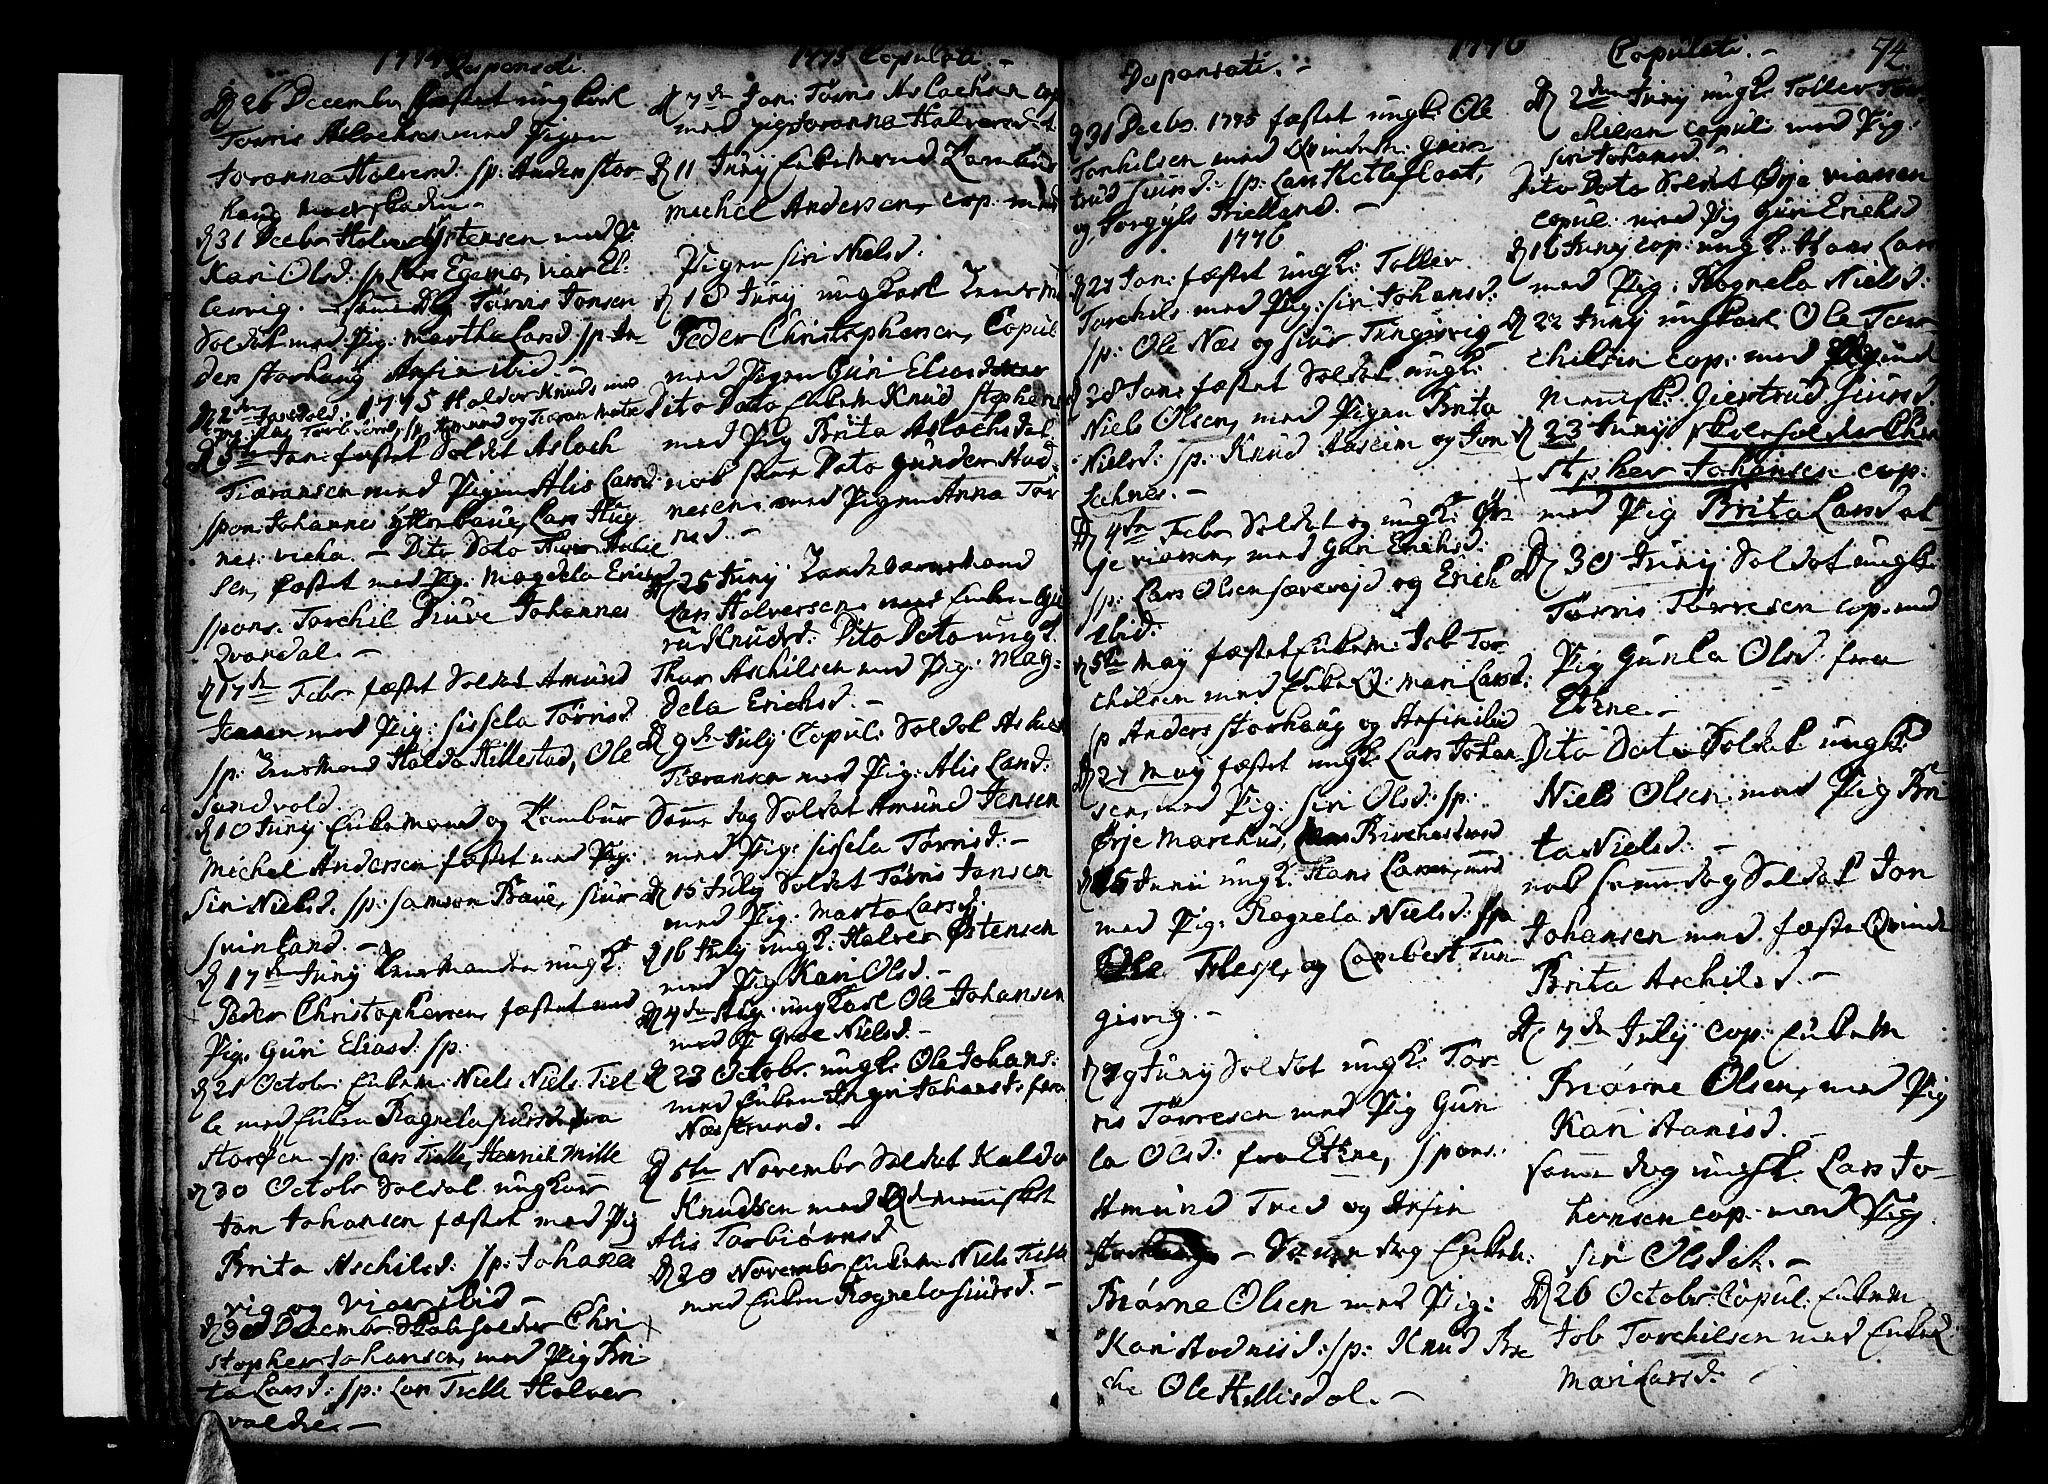 1774 Desponsati.
D 26 Decembr fæstet ungkarl
Torris Aslachsen med Pigen
Joranna Halversd: sp: Anden Stor-
haug
D 31 Decbr Halver Østensen med P:
Kari Olsd: sp: Lars Egemo, Viar El-
lervig. Samme Dag Tørris Jonsen
Soldat med Pig: Martha Larsd sp An-
ders Storhaug Arfin ibid. -
1775 Haldor Knuds med
D 5te Jan: fæstet Soldat Aslach
Tiøransen med Pigen Alis Larsd
spon: Johannes Ytterbøue, Lars Hug-
nes. - Dito Dato Thur Aschil
sen, fæstet med Pig: Magdela Ericsd
spons. Torchil Diuve Johannes
Qvandal. -
D 17de Febr fæstet Soldat Amund
Jensen med Pig: Sissela Tørrisd
sp: Lensmand Haldo Hillestad, Ole
Sandvold.
D 10 Junij Enkemand og Tambur
Michel Andersen fæstet med Pig:
Siri Nielsd. sp: Samson Bøue, Siur
Svinland. -
D 17de Junij Lensmanden ungk:
Peder Christophersen, fæstet med
Pig: Guri Eliasd: sp:
D 21 Octobr: Enkem: Niels Niels: Tiel
le med Enken Ragnela Siursd fra
Storøen - sp: Lars Tielle, Henrik Mille
D 30 Octobr Soldat ungkarl
Jon Johansen fæstet med Pig
Brita Aschilsd: sp: Johanes
vig og Viar ibid -
D 30 Decembr: Skoleholder Chri
stopher Johansen, med Pig Bri
ta Larsd: sp: Lars Tielle Halver
valdre. -
1775 Copulati. -
D 7de Jan: Tørris Aslachsen cop
med pig Joranna Halversd: -
D 11 Junij Enkemand Tambur
Michel Andersen, cop. med
Pigen Siri Nielsd.
D 18 Junij ungkarl Lensm:
Peder Christophersen, Copul
med Pigen Guri Eliasdatter
Dito Dato Enkem Knud Stephens
med Pig Brita Aslachsdat
nok same Dato Gunder Aad-
nesen med Pigen Anna Tor
rsd. -
D 25 Junij Landværnsmand
Lars Halversen, med Enken Gu
ru Knudsd: Dito Dato ungk.
Thur Aschilsen med Pig: Mag-
dela Erichsd. -
D 9de Julij Copul: Soldat Aslach
Tiøransen med Pig: Alis Larsd:
Same dag Soldat Amund Jensen
med Pig: Sissela Tørrisd: -
D 15 Julij Soldat Tørris Jonsen
med Pig: Marta Larsd:
D 16 Julij ungk: Halver Østensen
med Pig Kari Olsd. -
D 4de Aug: ungkarl Ole Johansen
med P: Groe Nielsd. -
D 23 Octobr: ungk: Ole Johans:
med Enken Ingri Johansd: fra
Næstrand. -
D 5te Novembr Soldat Haldo
Knudsen med Qvindemennisket
Alis Torbiørnsd
D 20 November Enkem Niels Tielle
med Enken Ragnela Siursd. -
1776
Desponsati. -
D 31 Decbr. 1775 fæstet ungk: Ole
Torchilsen med Qvindem: Gier-
trud Siursd: sp: Lars Hetlesflaat,
og Torgyls Bielland. -
1776
D 27 Jan: fæstet ungk: Toller
Torchils med Pig: Siri Johansd:
sp: Ole Næs og Siur Tungisvig
D 28 Jan: fæstet Soldat ungk:
Niels Olsen, med Pigen Brita
Nielsd: sp: Knud Aaseim og Jon
Lechnes. -
D 4de Febr Soldat og ungk: Ør-
je Viarsen, med Guri Erichsd:
sp: Lars Olsen Særevojd og Erich
ibid.
D 5te May fæstet Enkem: Job Tor
chilsen med Enke Q: Mari Larsd:
sp Anders Storhaug og Arfin ibid
D 27 May fæstet ungk Lars Johan-
sen, med Pig: Siri Olsd: sp:
Ørje Marchus, Birchestrand
D 15 Junii ungk: Hans Larsen, med
med Pig: Ragnela Nielsd: sp
Ole Flesje, og Lambert Tun-
gisvig. -
D 29 Junij Soldat ungk: Tør-
ris Tørresen med Pig Gun
la Olsd: fra Ethne, spons:
Amund Tved og Arfin
Storhaug - Same dag Enkem:
Biørne Olsen med Pig:
Kari Aadnisd: sp: Knud Bre
che Ole Hillisdal. -
Copulati. - 74.
D 2den Junij ungk: Toller Tor-
chilsen copul: med Pig:
Siri Johansd. -
Dito Dato Soldat Ørje Viarsen
copul: med Pig Guri Erichsd
D 16 Junij cop: ungk: Hans Lars
med Pig: Ragnela Nielsd:
D 22 Junij ungkarl Ole Tor-
chilsen cop. med Qvinde
Mennisk: Giertrud Siursd.
D 23 Junij Skoleholder Chri
stopher Johansen cop:
med Pig Brita Larsdat
D 30 Junij Soldat ungk:
Tørris Tørresen cop. med
Pig Gunla Olsd: fra
Ethne. -
Dito Dato Soldat ungk:
Niels Olsen med Pig Bri
ta Nielsd: -
nok same dag Soldat Jon
Johansen med fæste Qvinde
Brita Aschilsd. -
D 7de Julij cop: Enkem
Biørne Olsen, med Pig
Kari Aanisd. -
same dag ungk: Lars Jo-
hansen cop: med Pig
Siri Olsdt. -
D 26 Octobr: Copul: Enkem
Job Torchilsen med Enke Q
Mari Larsd: